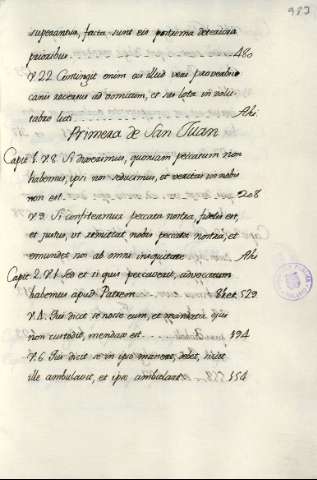 983
superantur, facta sunt eis posteriora deteriora
prioribus. 480
V. 22. Contingit enim eis illud veri proverbii
canis reversus ad vomitum, et sus lota in volu-
tabro luti Ahi
Primera de San Juan
Capit. 1. V. 8. Si dixerimus, quoniam peccatum non
habemus, ipsi nos seducimus, et veritas in nobis
non est 208
V. 9. Si confiteamur peccata nostra, fidelis est,
et justus, ut remittat nobis peccata nostra, et
emundet nos ab omni iniquitate Ahi
Capit. 2. V. 1. Sed et si quis peccaverit, advocatum
habemus apud Patrem et 529
V. 4. Qui dicit se nosse eum, et mandata ejus
non custodit, mendax est 194
V. 6. Qui dicit se in ipso manere, debet, sicut
ille ambulavit, et ipse ambulare 154